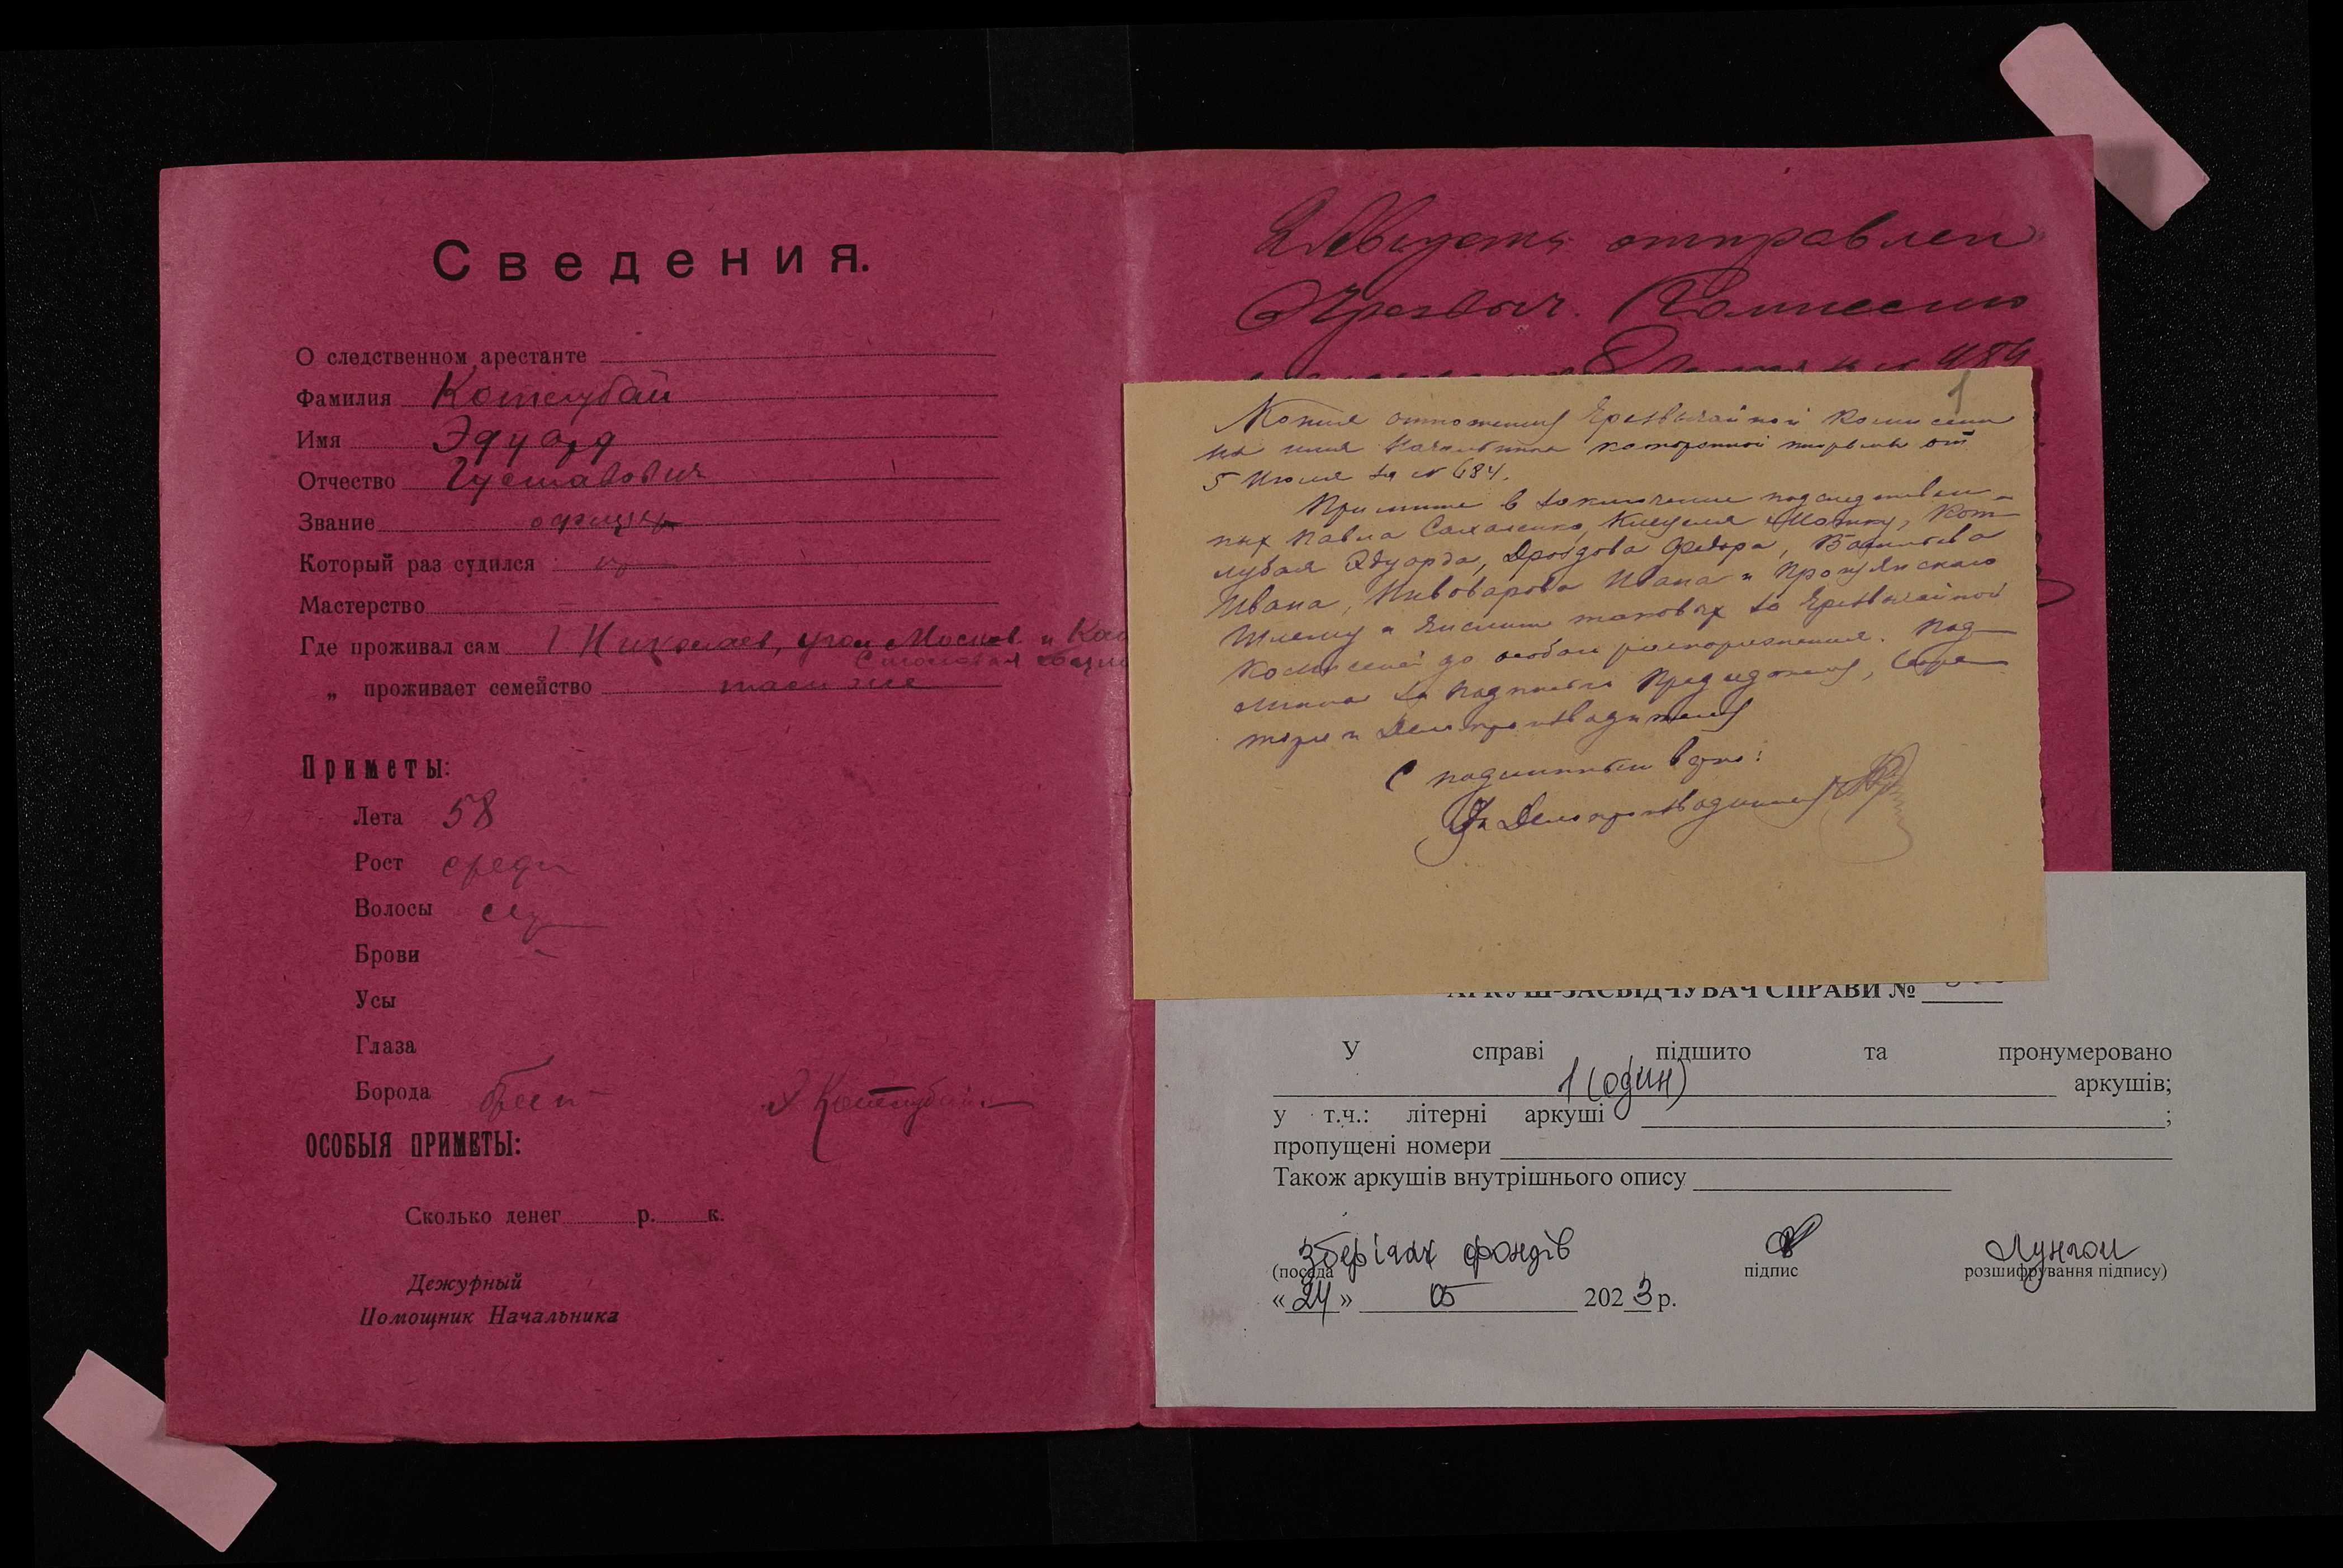 Сведения.
О следственном арестанте
Фамилия Котлубай
Имя Эдуард
Отчество Густавович
Звание офицер
Который раз судился
Мастерство
Где проживал сам Николаев, угол Москов. и
Столовая
„ проживает семейство там же
Приметы:
Лета 58
Рост средн
Волосы
Брови
Усы
Глаза
Борода
Э Котлубай
ОСОБЫЯ ПРИМЕТЫ:
Сколько денег р. к.
Дежурный
Помощник Начальника
2 Августа отправлен
в Чрезвыч. Комиссию
484
1
Копия отношения Чрезвычайной Комиссии
на имя Начальника каторжной тюрьмы от
5 Июля за № 684.
Примите в заключение подследствен-
ных Павла Сахаленко, Мотку, Кот-
лубая Эдуарда, Дроздова Федора,
Ивана, Пивоварова Ивана и
Шлему и числить таковых за Чрезвычайной
Комиссией до особого распоряжения. Под-
линно за подписью Председателя, Секре-
таря и Делопроизводителя
С подлинным верно:
За Делопроизводителя
АРКУШ-ЗАСВІДЧУВАЧ СПРАВИ №
У справі підшито та пронумеровано
1 (один) аркушів;
у т.ч.: літерні аркуші ;
пропущені номери
Також аркушів внутрішнього опису
Зберігач фондів
(посада підпис розшифрування підпису)
« 24 » 05 2023 р.